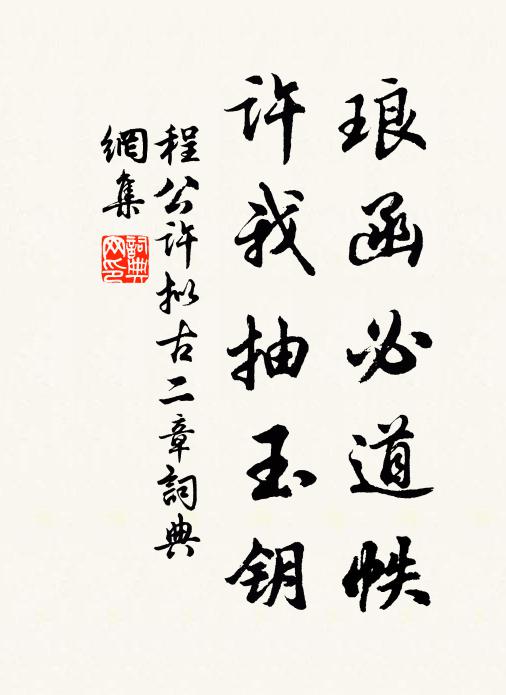 琅函必道帙
许我抽玉钥
程公许拟古二章詞典
網集
詞典网印